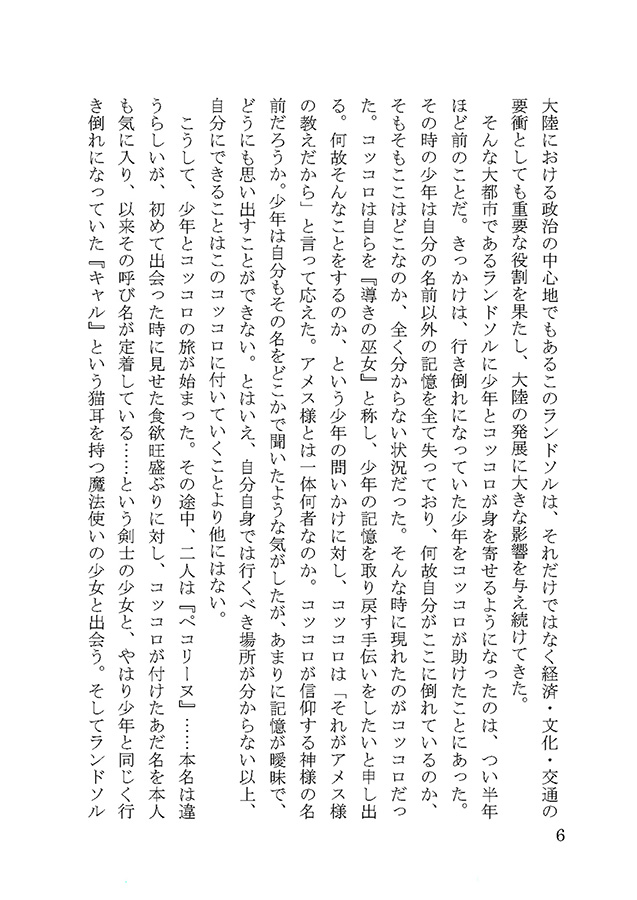 大陸における政治の中心地でもあるこのランドソルは、それだけではなく経済・文化・交通の
要衝としても重要な役割を果たし、大陸の発展に大きな影響を与え続けてきた。
　そんな大都市であるランドソルに少年とコッコロが身を寄せるようになったのは、つい半年
ほど前のことだ。きっかけは、行き倒れになっていた少年をコッコロが助けたことにあった。
その時の少年は自分の名前以外の記憶を全て失っており、何故自分がここに倒れているのか、
そもそもここはどこなのか、全く分からない状況だった。そんな時に現れたのがコッコロだっ
た。コッコロは自らを『導きの巫女』と称し、少年の記憶を取り戻す手伝いをしたいと申し出
る。何故そんなことをするのか、という少年の問いかけに対し、コッコロは「それがアメス様
の教えだから」と言って応えた。アメス様とは一体何者なのか。コッコロが信仰する神様の名
前だろうか。少年は自分もその名をどこかで聞いたような気がしたが、あまりに記憶が曖昧で、
どうにも思い出すことができない。とはいえ、自分自身では行くべき場所が分からない以上、
自分にできることはこのコッコロに付いていくことより他にはない。
　こうして、少年とコッコロの旅が始まった。その途中、二人は『ペコリーヌ』……本名は違
うらしいが、初めて出会った時に見せた食欲旺盛ぶりに対し、コッコロが付けたあだ名を本人
も気に入り、以来その呼び名が定着している……という剣士の少女と、やはり少年と同じく行
き倒れになっていた『キャル』という猫耳を持つ魔法使いの少女と出会う。そしてランドソル
6